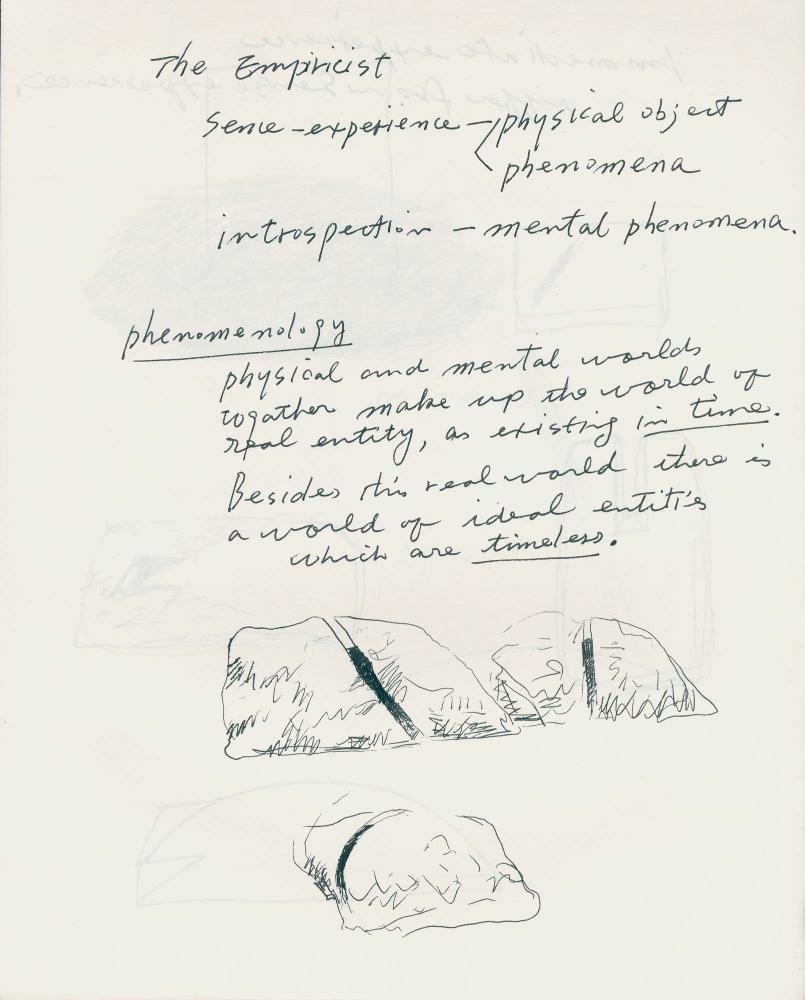 The Empiricist
Sence-experience - physical object
phenomena
introspection - mental phenomena.
phenomenology
physical and mental worlds
togather make up the world of
real entity, as existing in time.
Besides this real world there is
a world of ideal entities
which are timeless.